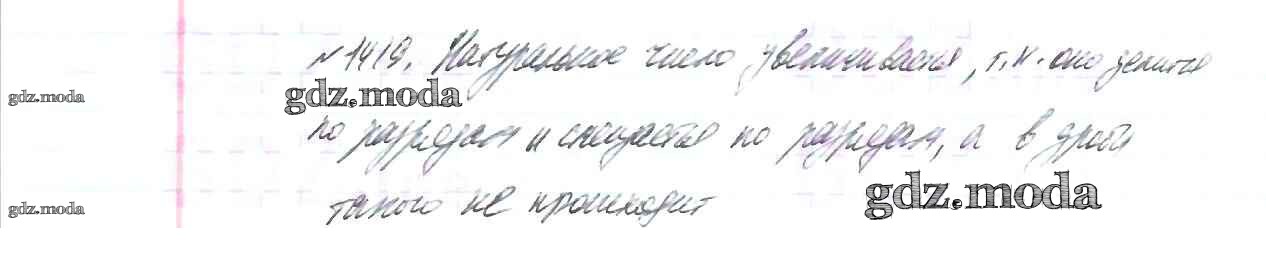 №1419. Натуральное число увеличивается, т.к. оно делится
gdz.moda
gdz.moda
по разрядам и смещается по разрядам, а в дроби
gdz.moda
такого не происходит
gdz.moda